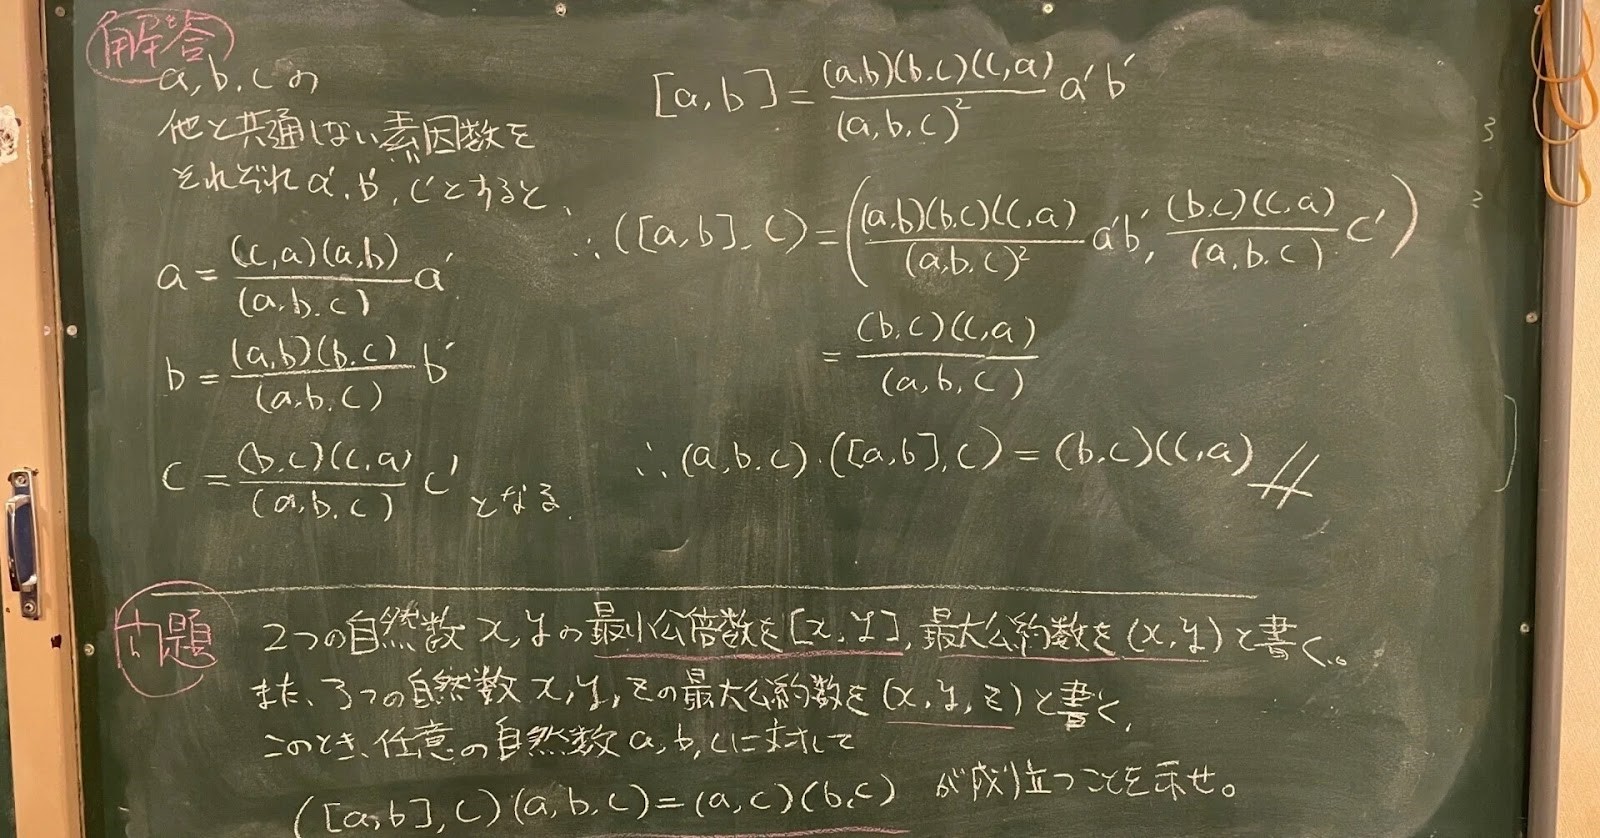 解答
a, b, c の
他と共通しない素因数を
それぞれ a', b', c' とすると、
a = (c,a)(a,b)/(a,b,c) a'
b = (a,b)(b,c)/(a,b,c) b'
c = (b,c)(c,a)/(a,b,c) c' となる.
[a,b] = (a,b)(b,c)(c,a)/(a,b,c)² a'b'
∴ ([a,b],c) = ((a,b)(b,c)(c,a)/(a,b,c)² a'b', (b,c)(c,a)/(a,b,c) c')
= (b,c)(c,a)/(a,b,c)
∴ (a,b,c)・([a,b],c) = (b,c)(c,a) //
問題
2つの自然数 x, y の最小公倍数を [x,y], 最大公約数を (x,y) と書く。
また、3つの自然数 x, y, z の最大公約数を (x,y,z) と書く,
このとき、任意の自然数 a, b, c に対して
([a,b],c)(a,b,c)=(a,c)(b,c) が成り立つことを示せ。